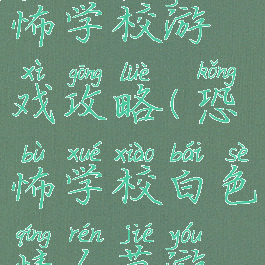 怖学校游
xì gōng lüè kǒng
戏攻略(恐
bù xué xiào bái sè
怖学校白色
qíng rén jié yóu
情人节游